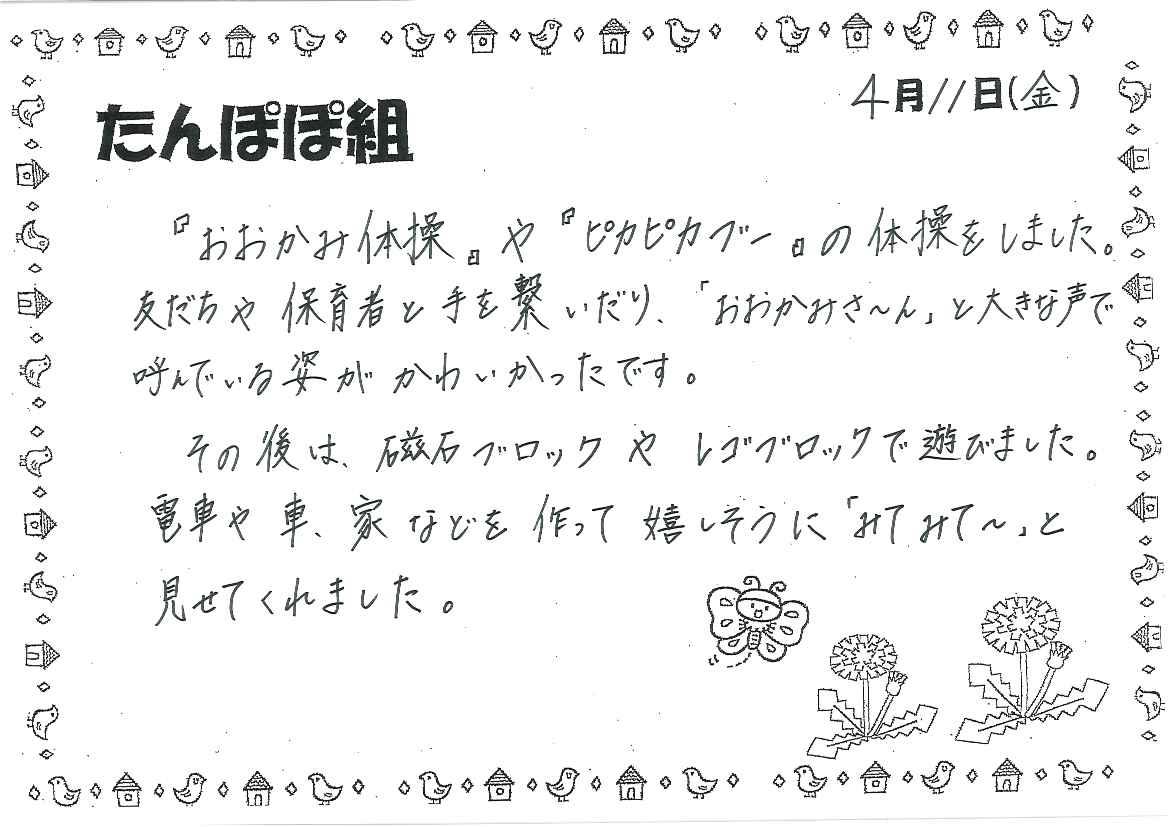 たんぽぽ組
4月11日(金)
『おおかみ体操』や『ピカピカブー』の体操をしました。
友だちや保育者と手を繋いだり、「おおかみさ～ん」と大きな声で
呼んでいる姿がかわいかったです。
その後は、磁石ブロックやレゴブロックで遊びました。
電車や車、家などを作って嬉しそうに「みてみて～」と
見せてくれました。